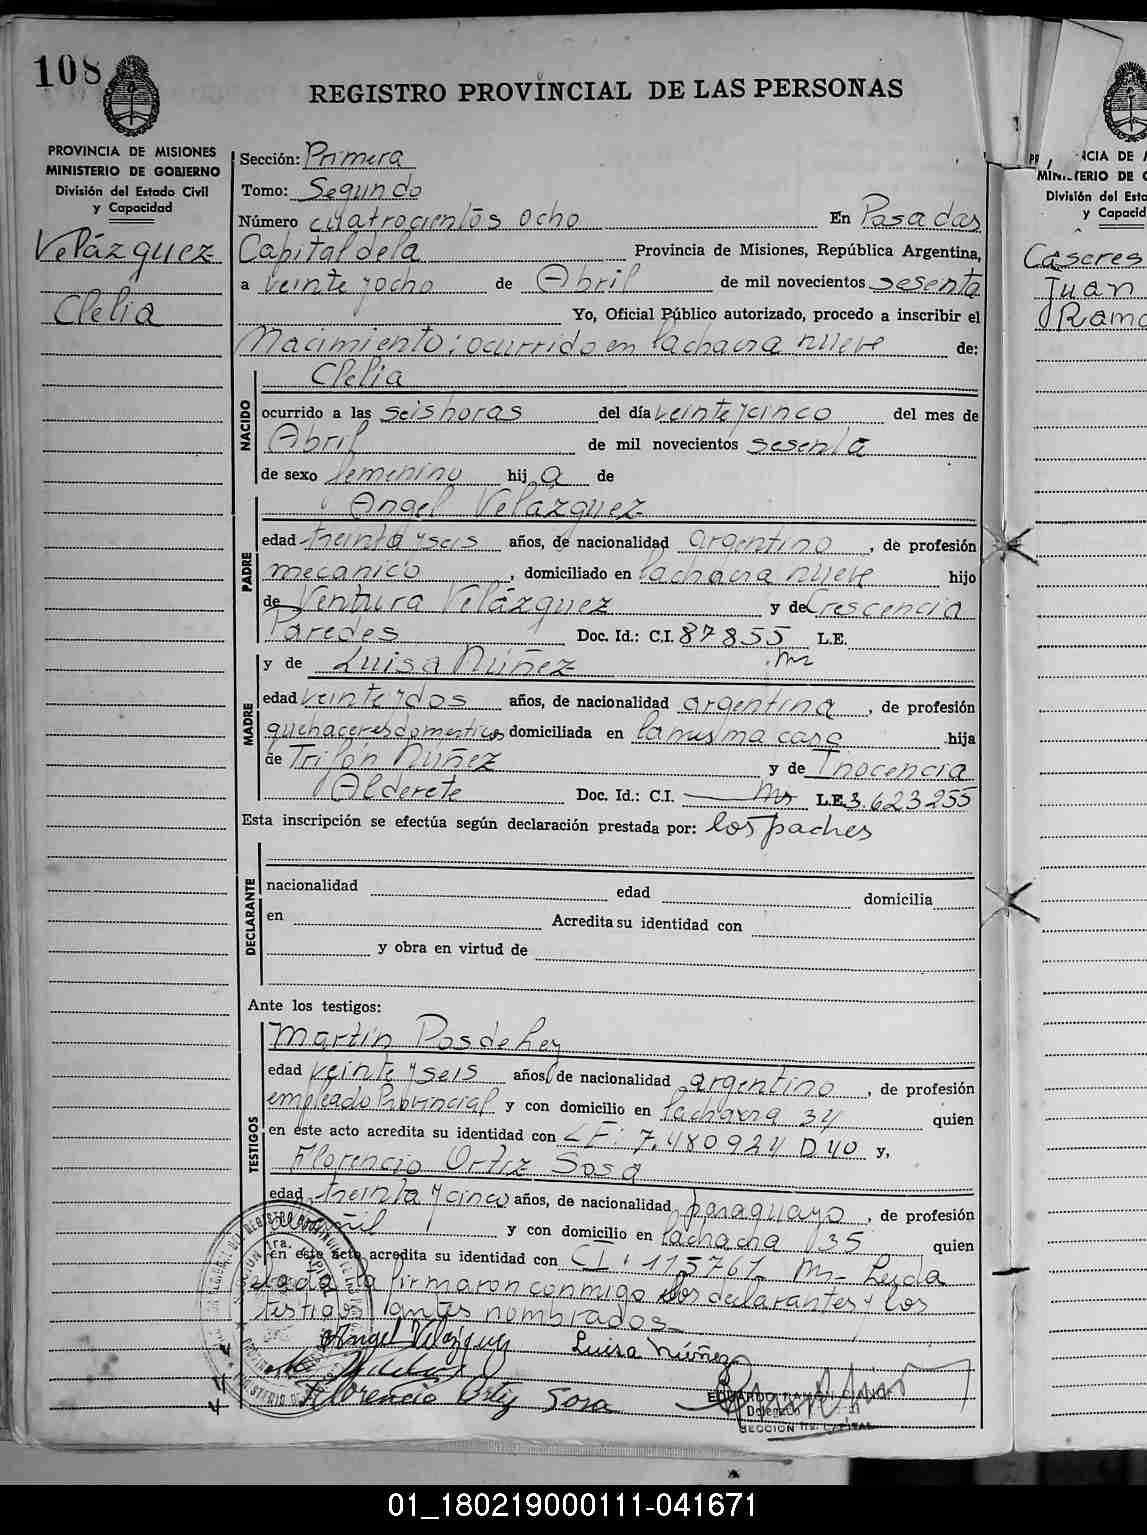 108
REGISTRO PROVINCIAL DE LAS PERSONAS
PROVINCIA DE MISIONES
MINISTERIO DE GOBIERNO
División del Estado Civil
y Capacidad
Velázquez
Clelia
Sección: Primera
Tomo: Segundo
Número cuatrocientos ocho En Posadas
Capital de la Provincia de Misiones, República Argentina,
a veinte y ocho de Abril de mil novecientos sesenta
Yo, Oficial Público autorizado, procedo a inscribir el
Nacimiento: ocurrido en la chacra nueve de:
Clelia
NACIDO
ocurrido a las seis horas del día veinte y cinco del mes de
Abril de mil novecientos sesenta
de sexo femenino hij a de
Angel Velázquez
PADRE
edad treinta y seis años, de nacionalidad argentino, de profesión
mecanico, domiciliado en la chacra nueve hijo
de Ventura Velázquez y de Crescencia
Paredes Doc. Id.: C.I. 87855 L.E.
y de Luisa Núñez
MADRE
edad veinte y dos años, de nacionalidad argentina, de profesión
quehaceres domesticos domiciliada en la misma casa hija
de Trifón Núñez y de Inocencia
Alderete Doc. Id.: C.I. L.E. 3.623255
Esta inscripción se efectúa según declaración prestada por: los padres
DECLARANTE
nacionalidad edad domicilia
en Acredita su identidad con
y obra en virtud de
Ante los testigos:
TESTIGOS
Martín Posdeley
edad veinte y seis años, de nacionalidad argentino, de profesión
empleado Provincial y con domicilio en la chacra 34 quien
en este acto acredita su identidad con 7.480924 D 40 y,
Florencio Ortiz Sosa
edad treinta y cinco años, de nacionalidad paraguayo, de profesión
y con domicilio en la chacra 35 quien
en este acto acredita su identidad con CI. 115767 M- Leyda
el acta la firmaron conmigo los declarantes y los
testigos antes nombrados
Angel Velázquez Luisa Núñez
Florencio Ortiz Sosa
EDUARDO RAMON
Delegado
SECCION 1ra. CAPITAL
CIA DE
MINISTERIO DE
División del Esta
y Capacid
Caseres
Juan
Ramo
01_180219000111-041671